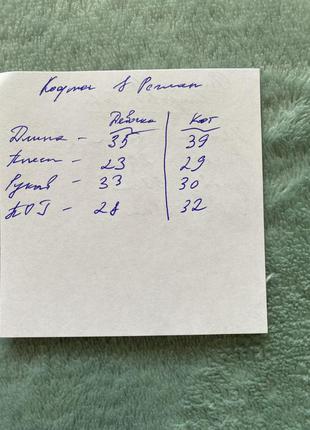 Кофточ в Реглан
Девочка Кот
Длина - 35 39
Плеч - 23 29
Рукав - 33 30
ПОГ - 28 32